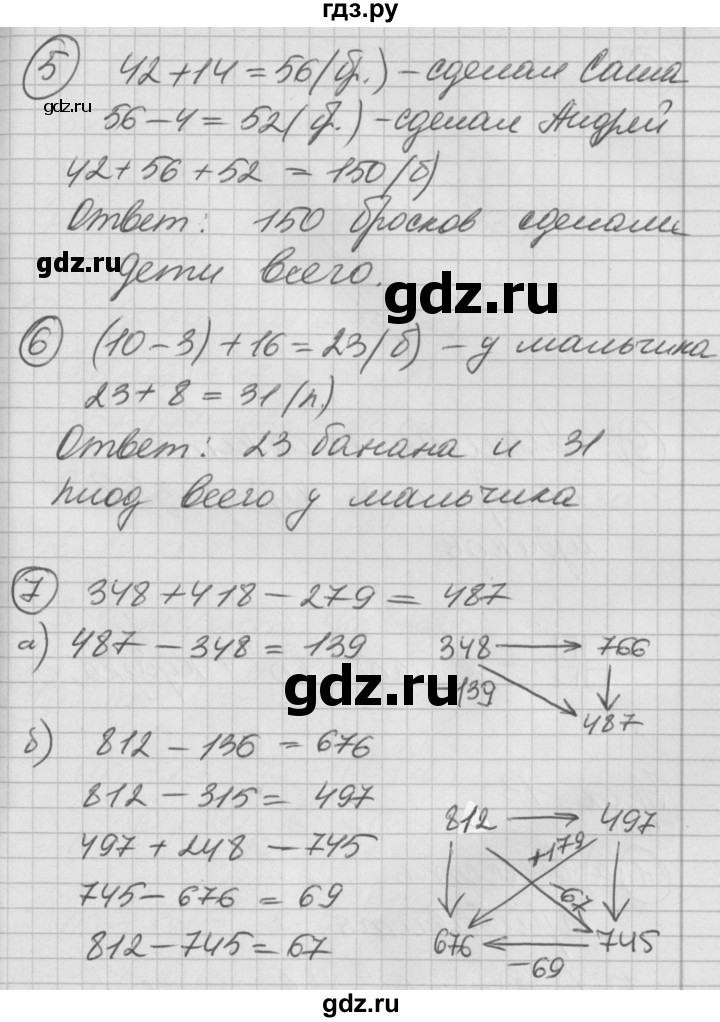 гдз.ру
5 42+14=56(бр.) – сделал Саша
56–4=52(б.) – сделал Андрей
gdz.ru
42+56+52 = 150(б)
Ответ: 150 бросков сделали
gdz.ru
дети всего.
gdz.ru
6 (10–3)+16=23(б) – у мальчика
23+8=31(п.)
Ответ: 23 банана и 31
плод всего у мальчика
7 348+418–279= 487
а) 487–348=139 348 → 766
gdz.ru
139
487
б) 812–136=676
812–315= 497
812 → 497
497+248 –745
+179
–67
745–676=69
812–745=67
676 745
–69
gdz.ru